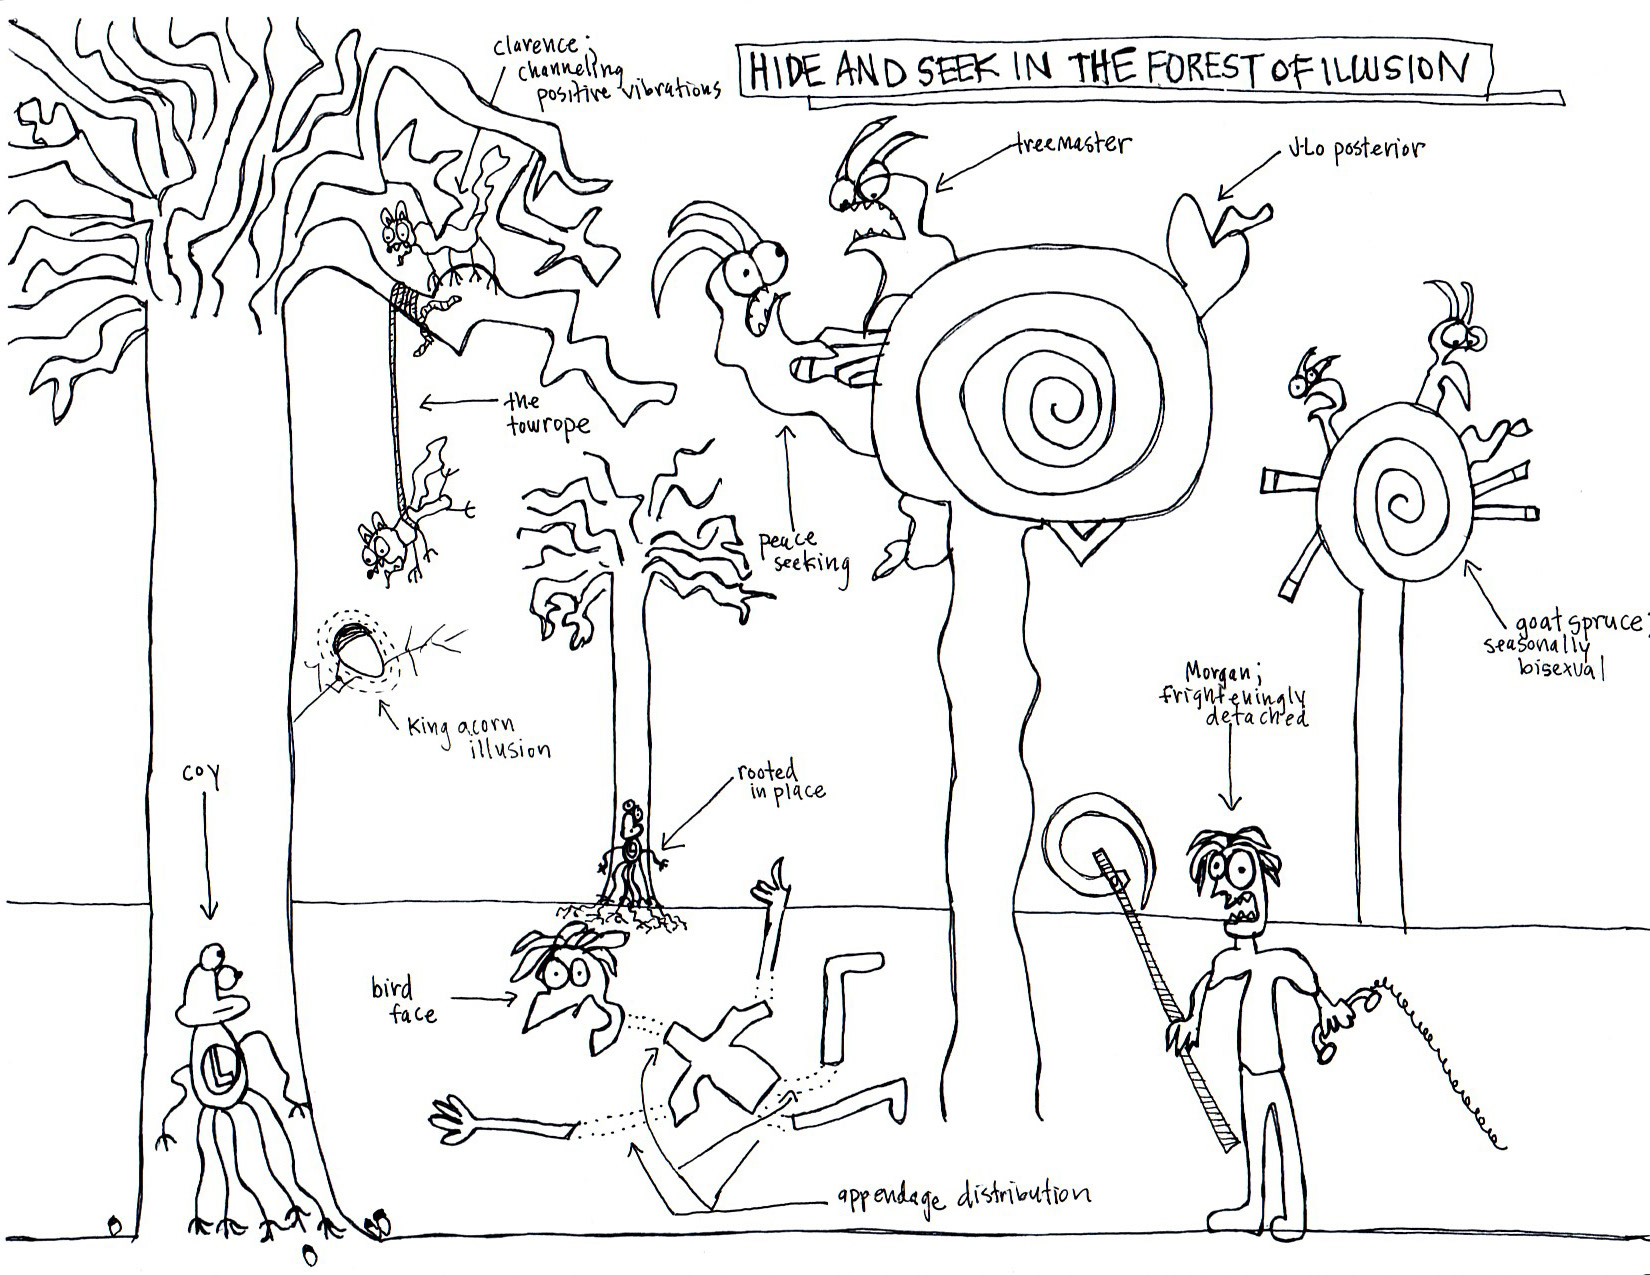 HIDE AND SEEK IN THE FOREST OF ILLUSION
clarence;
channeling
positive vibrations
treemaster
J-Lo posterior
the
towrope
peace
seeking
goat spruce;
seasonally
bisexual
Morgan;
frighteningly
detached
King acorn
illusion
coy
rooted
in place
bird
face
L
appendage distribution